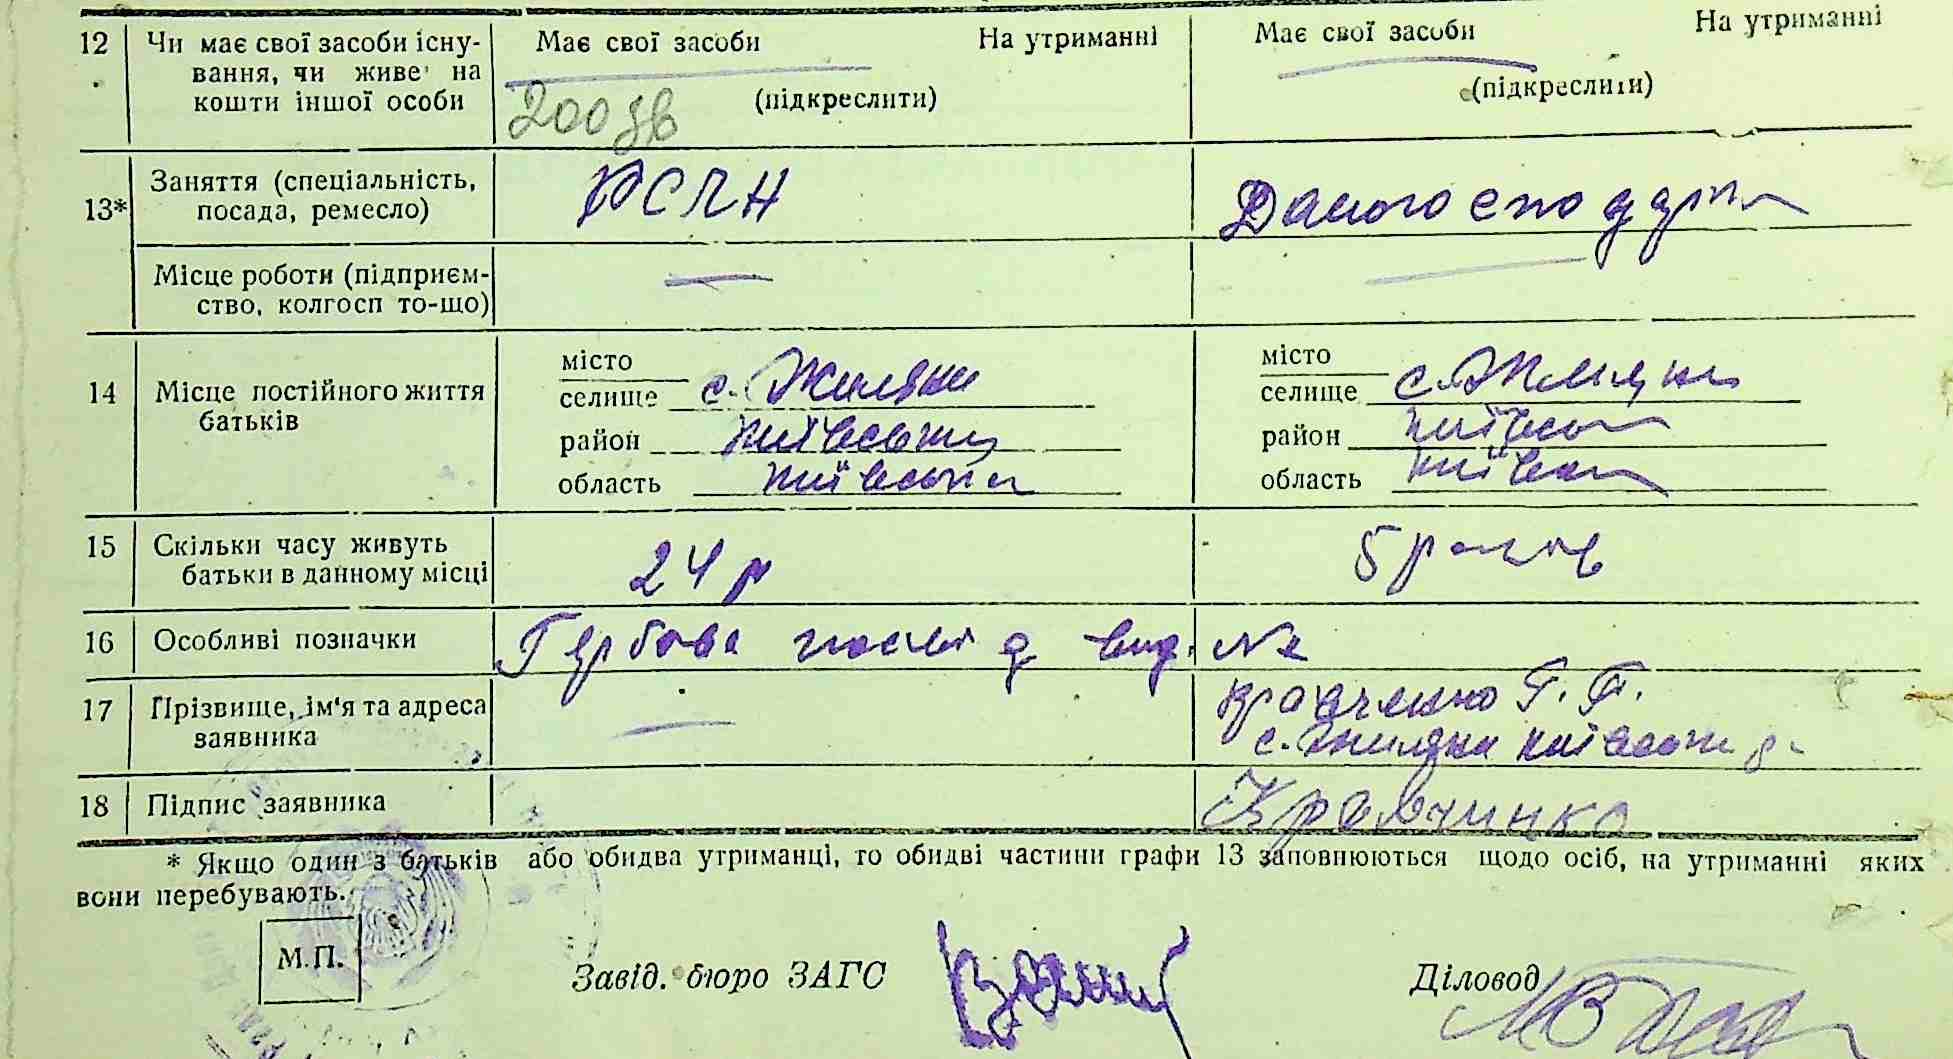 12 Чи має свої засоби існу- Має свої засоби На утриманні Має свої засоби На утриманні
вання, чи живе на
кошти іншої особи 200 (підкреслити) (підкреслити)
13* Заняття (спеціальність,
посада, ремесло) Домогосподарка
Місце роботи (підприєм- — —
ство, колгосп то-що)
14 Місце постійного життя
батьків
місто місто
селище с. Жиляни селище с. Жиляни
район Київський район
область Київська область
15 Скільки часу живуть
батьки в данному місці 24 р 5 років
16 Особливі позначки Гербова посвід вид. №
17 Прізвище, ім'я та адреса — Кравченко Г. Т.
заявника с. Жиляни
18 Підпис заявника Кравчинко
* Якщо один з батьків або обидва утриманці, то обидві частини графи 13 заповнюються щодо осіб, на утриманні яких
вони перебувають.
М.П.
Завід. бюро ЗАГС Діловод